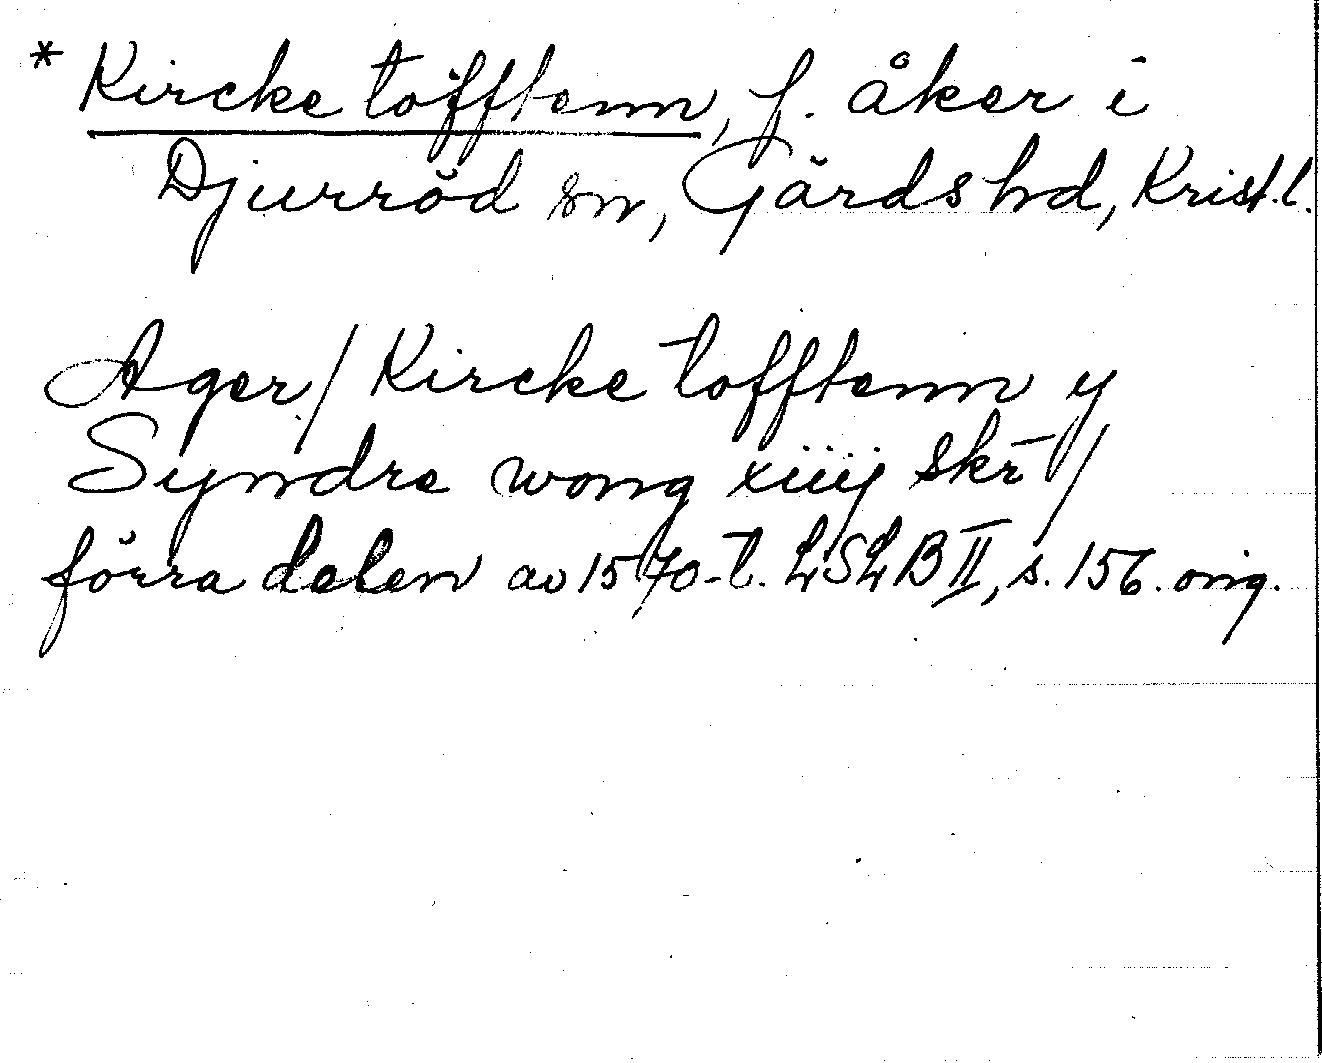 * Kircke tofftenn, f. åker i
Djurröd sn, Gärds hd, Krist.l.
Ager/ Kircke tofftenn y
Syndre wong xiiij skr̄ /
förra delen av 1570-t. LSLB II, s. 156. orig.